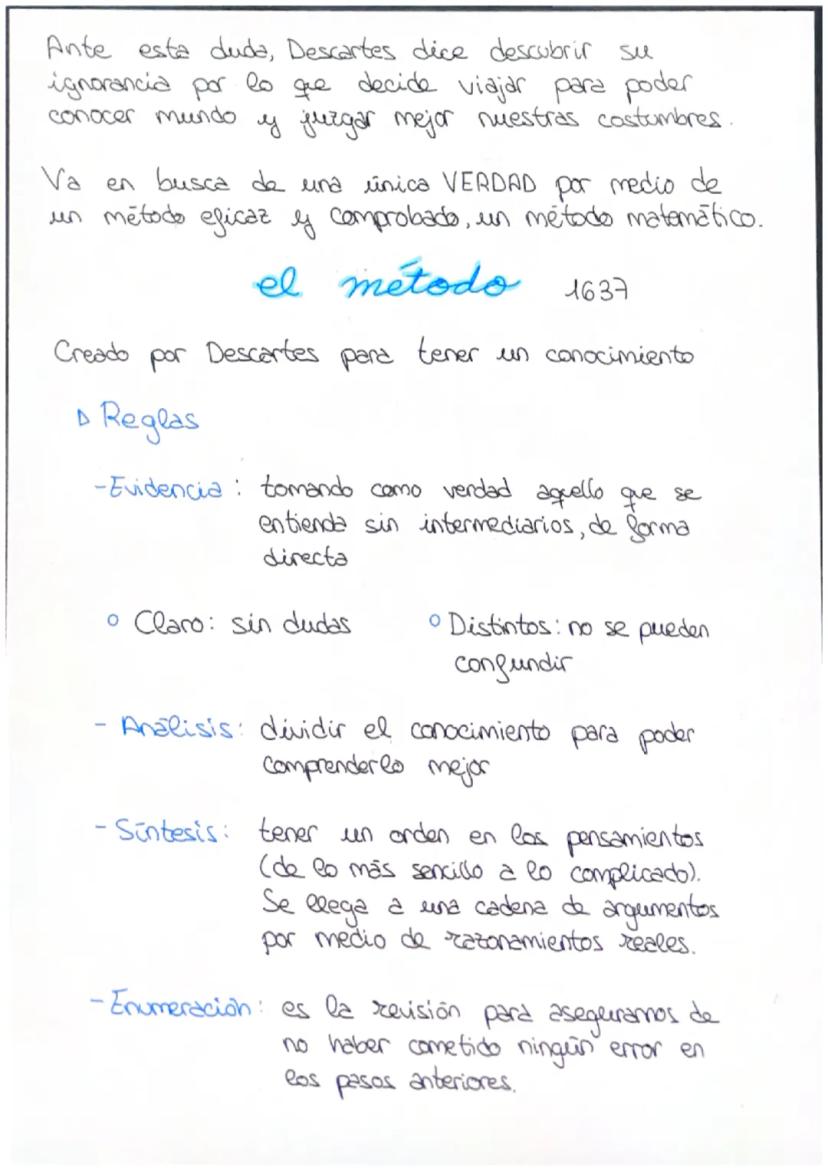 Ante esta duda, Descartes dice descubrir su
ignorancia por lo que decide viajar para poder
conocer mundo y juzgar mejor nuestras costumbres.
Va en busca de una única VERDAD por medio de
un método eficaz y comprobado, un método matemático.
el método 1637
Creado por Descartes para tener un conocimiento
▷ Reglas
- Evidencia: tomando como verdad aquello que se
entienda sin intermediarios, de forma
directa
° Claro: sin dudas ° Distintos: no se pueden
confundir
- Análisis: dividir el conocimiento para poder
comprenderlo mejor
- Síntesis: tener un orden en los pensamientos
(de lo más sencillo a lo complicado).
Se llega a una cadena de argumentos
por medio de razonamientos reales.
- Enumeración: es la revisión para asegurarnos de
no haber cometido ningún error en
los pasos anteriores.